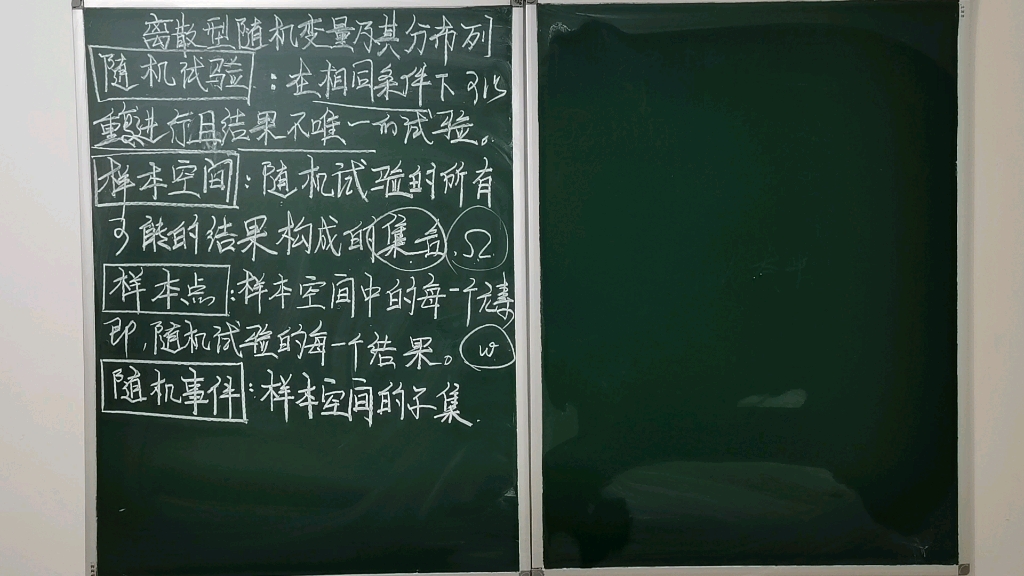 离散型随机变量及其分布列
随机试验：在相同条件下可以
重复进行且结果不唯一的试验。
样本空间：随机试验的所有
可能的结果构成的集合.Ω
样本点：样本空间中的每一个元素
即,随机试验的每一个结果。w
随机事件：样本空间的子集.